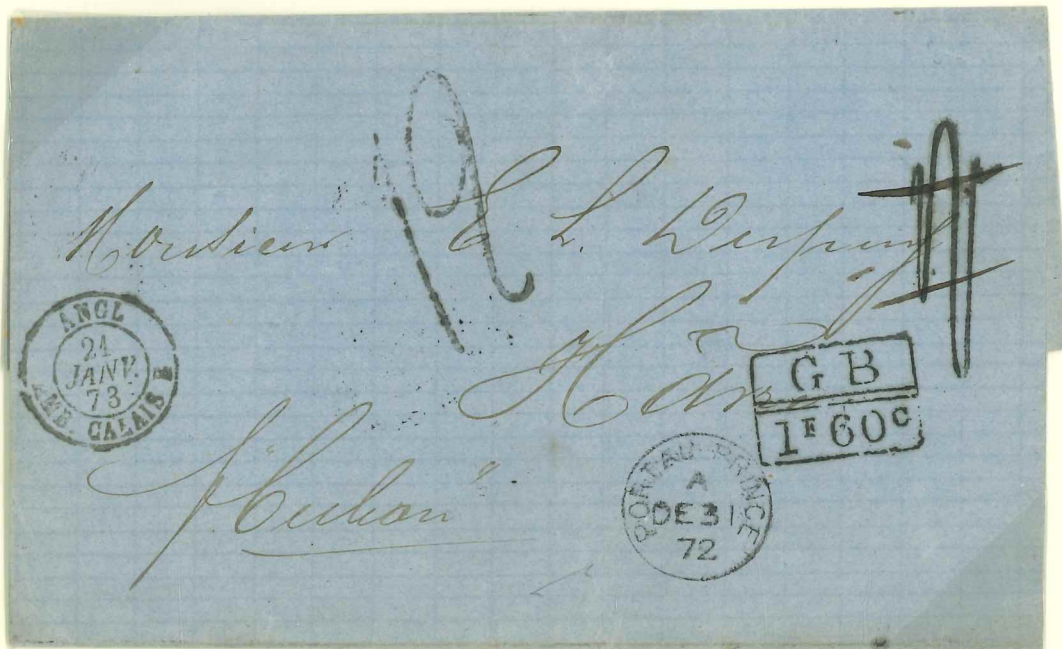 Monsieur E. L. Dupuy
Hâvre
p "Cuban"
ANGL
21
JANV.
73
AMB. CALAIS E
G B
1F 60C
PORT AU PRINCE
A
DE 31
72